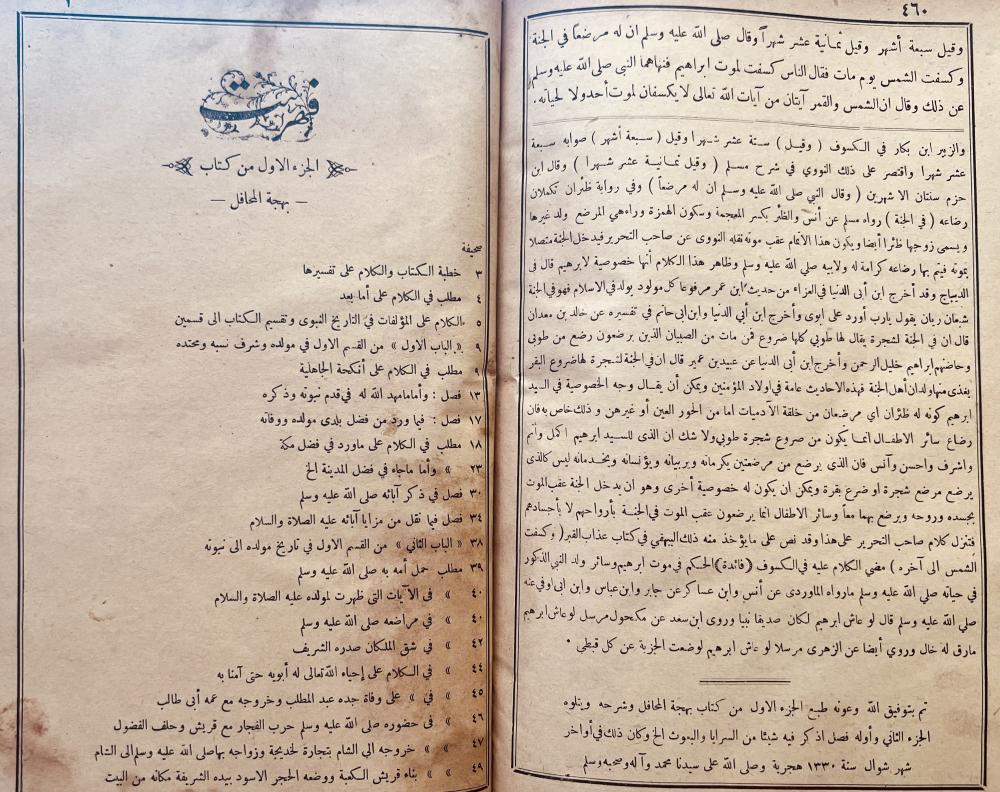 ٤٦٠
وقيل سبعة أشهر وقيل ثمانية عشر شهراً وقال صلى الله عليه وسلم ان له مرضعاً في الجنة
وكسفت الشمس يوم مات فقال الناس كسفت لموت ابراهيم فنهاهما النبي صلى الله عليه وسلم
عن ذلك وقال ان الشمس والقمر آيتان من آيات الله تعالى لا يكسفان لموت أحد ولا لحياته .
والزبير ابن بكار في الكسوف ( وقيل ) ستة عشر شهرا وقيل ( سبعة أشهر ) صوابه سبعة
عشر شهرا واقتصر على ذلك النووي في شرح مسلم ( وقيل ثمانية عشر شهرا ) وقال ابن
حزم سنتان الا شهرين ( وقال النبي صلى الله عليه وسلم ان له مرضعاً ) وفي رواية ظئران تكملان
رضاعه ( في الجنة ) رواه مسلم عن أنس والظئر بكسر المعجمة وسكون الهمزة وراء هي المرضع ولد غيرها
ويسمى زوجها ظئرا أيضا ويكون هذا الاتمام عقب موته نقله النووي عن صاحب التحرير فيدخل الجنة متصلا
بموته فيتم بها رضاعه كرامة له ولابيه صلى الله عليه وسلم وظاهر هذا الكلام أنها خصوصية لابرهيم قال في
الديباج وقد أخرج ابن أبى الدنيا في العزاء من حديث ابن عمر مرفوعا كل مولود يولد في الاسلام فهو في الجنة
شبعان ريان يقول يارب أورد على ابوى وأخرج ابن أبي الدنيا وابن ابى حاتم في تفسيره عن خالد بن معدان
قال ان في الجنة لشجرة يقال لها طوبي كلها ضروع فمن مات من الصبيان الذين يرضعون رضع من طوبى
وحاضنهم ابراهيم خليل الرحمن وأخرج ابن أبى الدنيا عن عبيد بن عمير قال ان في الجنة لشجرة لها ضروع البقر
يغذى منها ولدان أهل الجنة فهذه الاحاديث عامة في اولاد المؤمنين ويمكن أن يقال وجه الخصوصية في السيد
ابرهيم كونه له ظئران اي مرضعان من خلقة الآدميات اما من الحور العين أو غيرهن وذلك خاص به فان
رضاع سائر الاطفال انما يكون من ضروع شجرة طوبي ولا شك ان الذى للسيد ابرهيم اكمل واتم
واشرف واحسن وآنس فان الذى يرضع من مرضعتين يكرمانه ويربيانه ويؤنسانه ويخدمانه ليس كالذى
يرضع مرضع شجرة او ضرع بقرة ويمكن ان يكون له خصوصية أخرى وهو ان يدخل الجنة عقب الموت
بجسده وروحه ويرضع بهما معاً وسائر الاطفال انما يرضعون عقب الموت في الجنة بأرواحهم لا بأجسادهم
فتنزل كلام صاحب التحرير على هذا وقد نص على ما يؤخذ منه ذلك البيهقي في كتاب عذاب القبر ( وكسفت
الشمس الى آخره ) مضى الكلام عليه في الكسوف (فائدة) الحكم في موت ابرهيم وسائر ولد النبى الذكور
في حياته صلى الله عليه وسلم مارواه الماوردى عن أنس وابن عساكر عن جابر وابن عباس وابن ابى اوفى عنه
صلى الله عليه وسلم قال لو عاش ابرهيم لكان صديقا نبيا وروى ابن سعد عن مكحول مرسل لو عاش ابرهيم
مارق له خال وروي أيضا عن الزهرى مرسلا لو عاش ابرهيم لوضعت الجزية عن كل قبطي .
تم بتوفيق الله وعونه طبع الجزء الاول من كتاب بهجة المحافل وشرحه ويتلوه
الجزء الثاني وأوله فصل اذكر فيه شيئا من السرايا والبعوث الخ وكان ذلك في أواخر
شهر شوال سنة ١٣٣٠ هجرية وصلى الله على سيدنا محمد وآله وصحبه وسلم
فهرست
الجزء الاول من كتاب
— بهجة المحافل —
صحيفة
٣ خطبة الكتاب والكلام على تفسيرها
٤ مطلب في الكلام على أما بعد
٥ الكلام على المؤلفات في التاريخ النبوى وتقسيم الكتاب الى قسمين
٩ « الباب الاول » من القسم الاول في مولده وشرف نسبه ومحتده
٩ مطلب في الكلام على أنكحة الجاهلية
١٣ فصل : وأما مامهد الله له في قدم نبوته وذكره
١٧ فصل : فيما ورد من فضل بلدى مولده ووفاته
١٨ مطلب في الكلام على ماورد في فضل مكة
٢٣ » وأما ماجاء في فضل المدينة الخ
٣٠ فصل في ذكر آبائه صلى الله عليه وسلم
٣٤ فصل فيما نقل من مزايا آبائه عليه الصلاة والسلام
٣٨ « الباب الثاني » من القسم الاول في تاريخ مولده الى نبوته
٣٩ مطلب حمل أمه به صلى الله عليه وسلم
٤٠ » فى الآيات التى ظهرت لمولده عليه الصلاة والسلام
٤٠ » في مراضعه صلى الله عليه وسلم
٤٢ » في شق الملكان صدره الشريف
٤٤ » في الكلام على إحياء الله تعالى له أبويه حتى آمنا به
٤٥ » في » على وفاة جده عبد المطلب وخروجه مع عمه أبى طالب
٤٦ » فى حضوره صلى الله عليه وسلم حرب الفجار مع قريش وحلف الفضول
٤٧ » » خروجه الى الشام بتجارة لخديجة وزواجه بها صلى الله عليه وسلم الى الشام
٤٩ » » بناء قريش الكعبة ووضعه الحجر الاسود بيده الشريفة مكانه من البيت